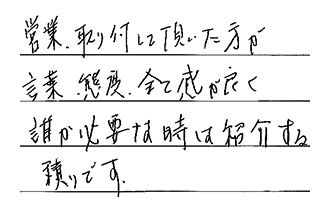 営業、取り付して頂いた方が
言葉、態度、全て感が良く
誰か必要な時は紹介する
積りです.